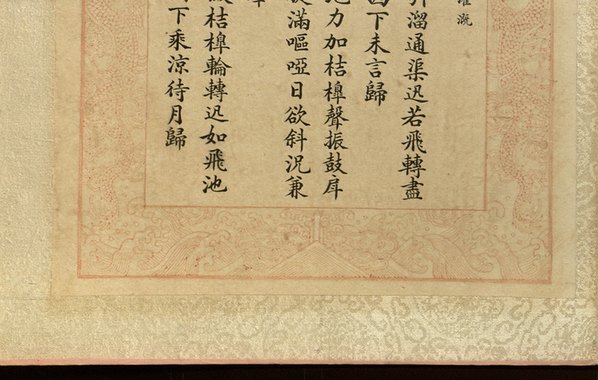 灌溉
引溜通渠迅若飛轉盡
下未言歸
力加桔槔聲振鼓戽
滿嘔啞日欲斜況兼
桔槔輪轉迅如飛池
下乘涼待月歸